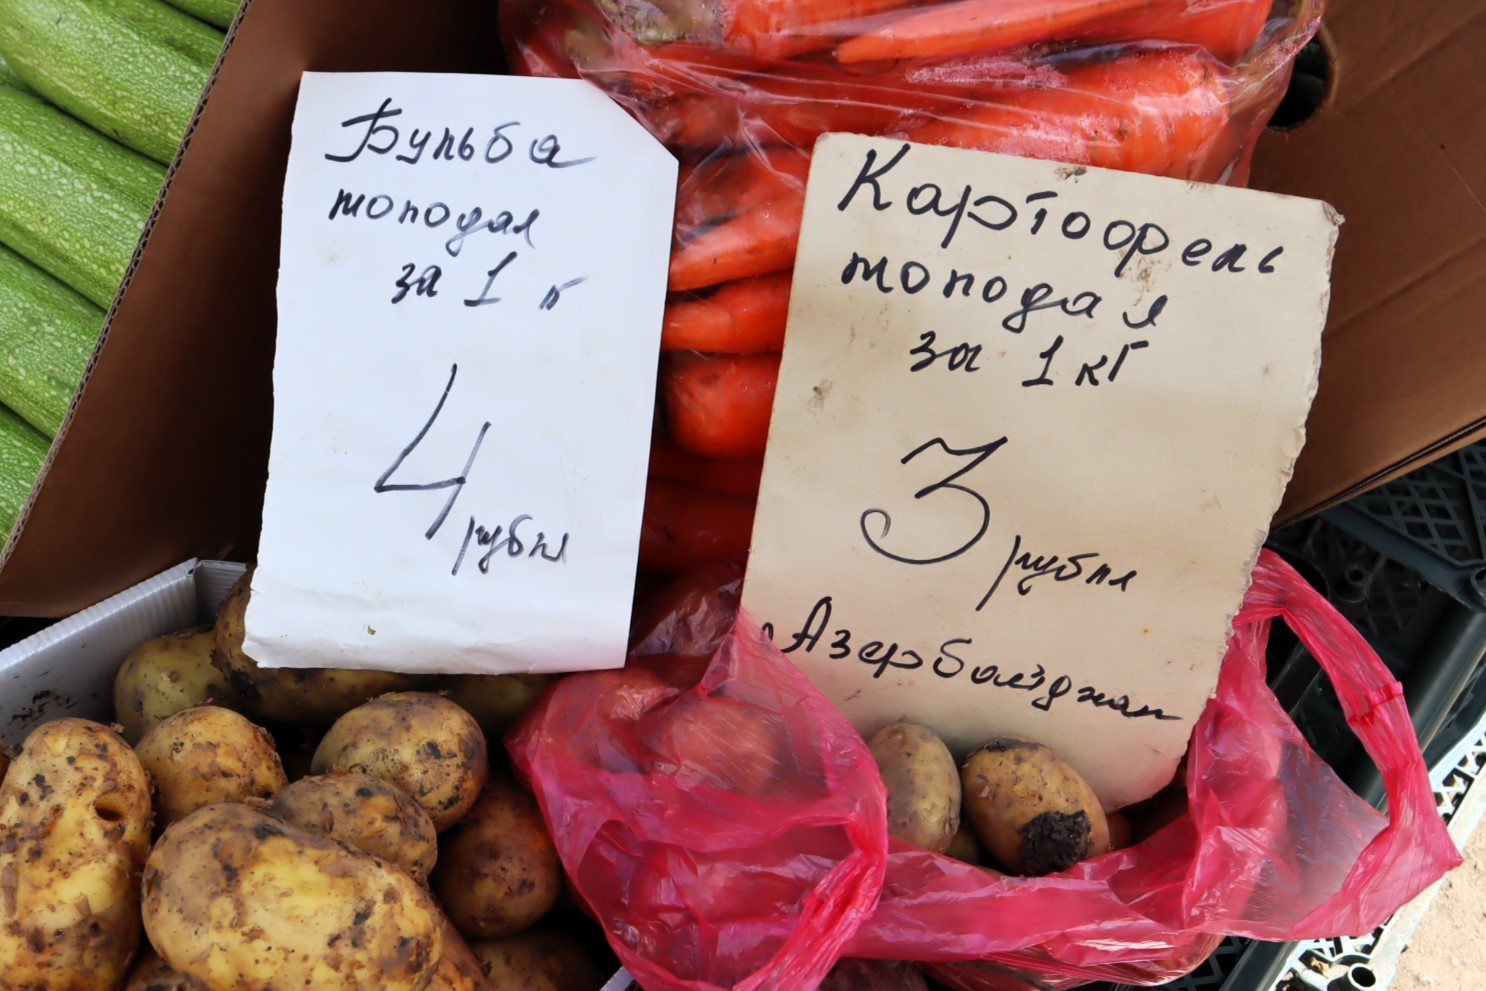 Бульба
молодая
за 1 к
4 рубля
Картофель
молодая
за 1 кг
3 рубля
Азербайджан